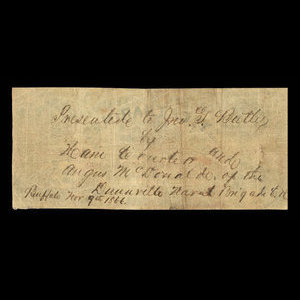 Presented to Jno. L. Butler
by
and
Angus McDonald. of the
Dunnville Naval Brigade C.W
Buffalo Nov 9th 1866